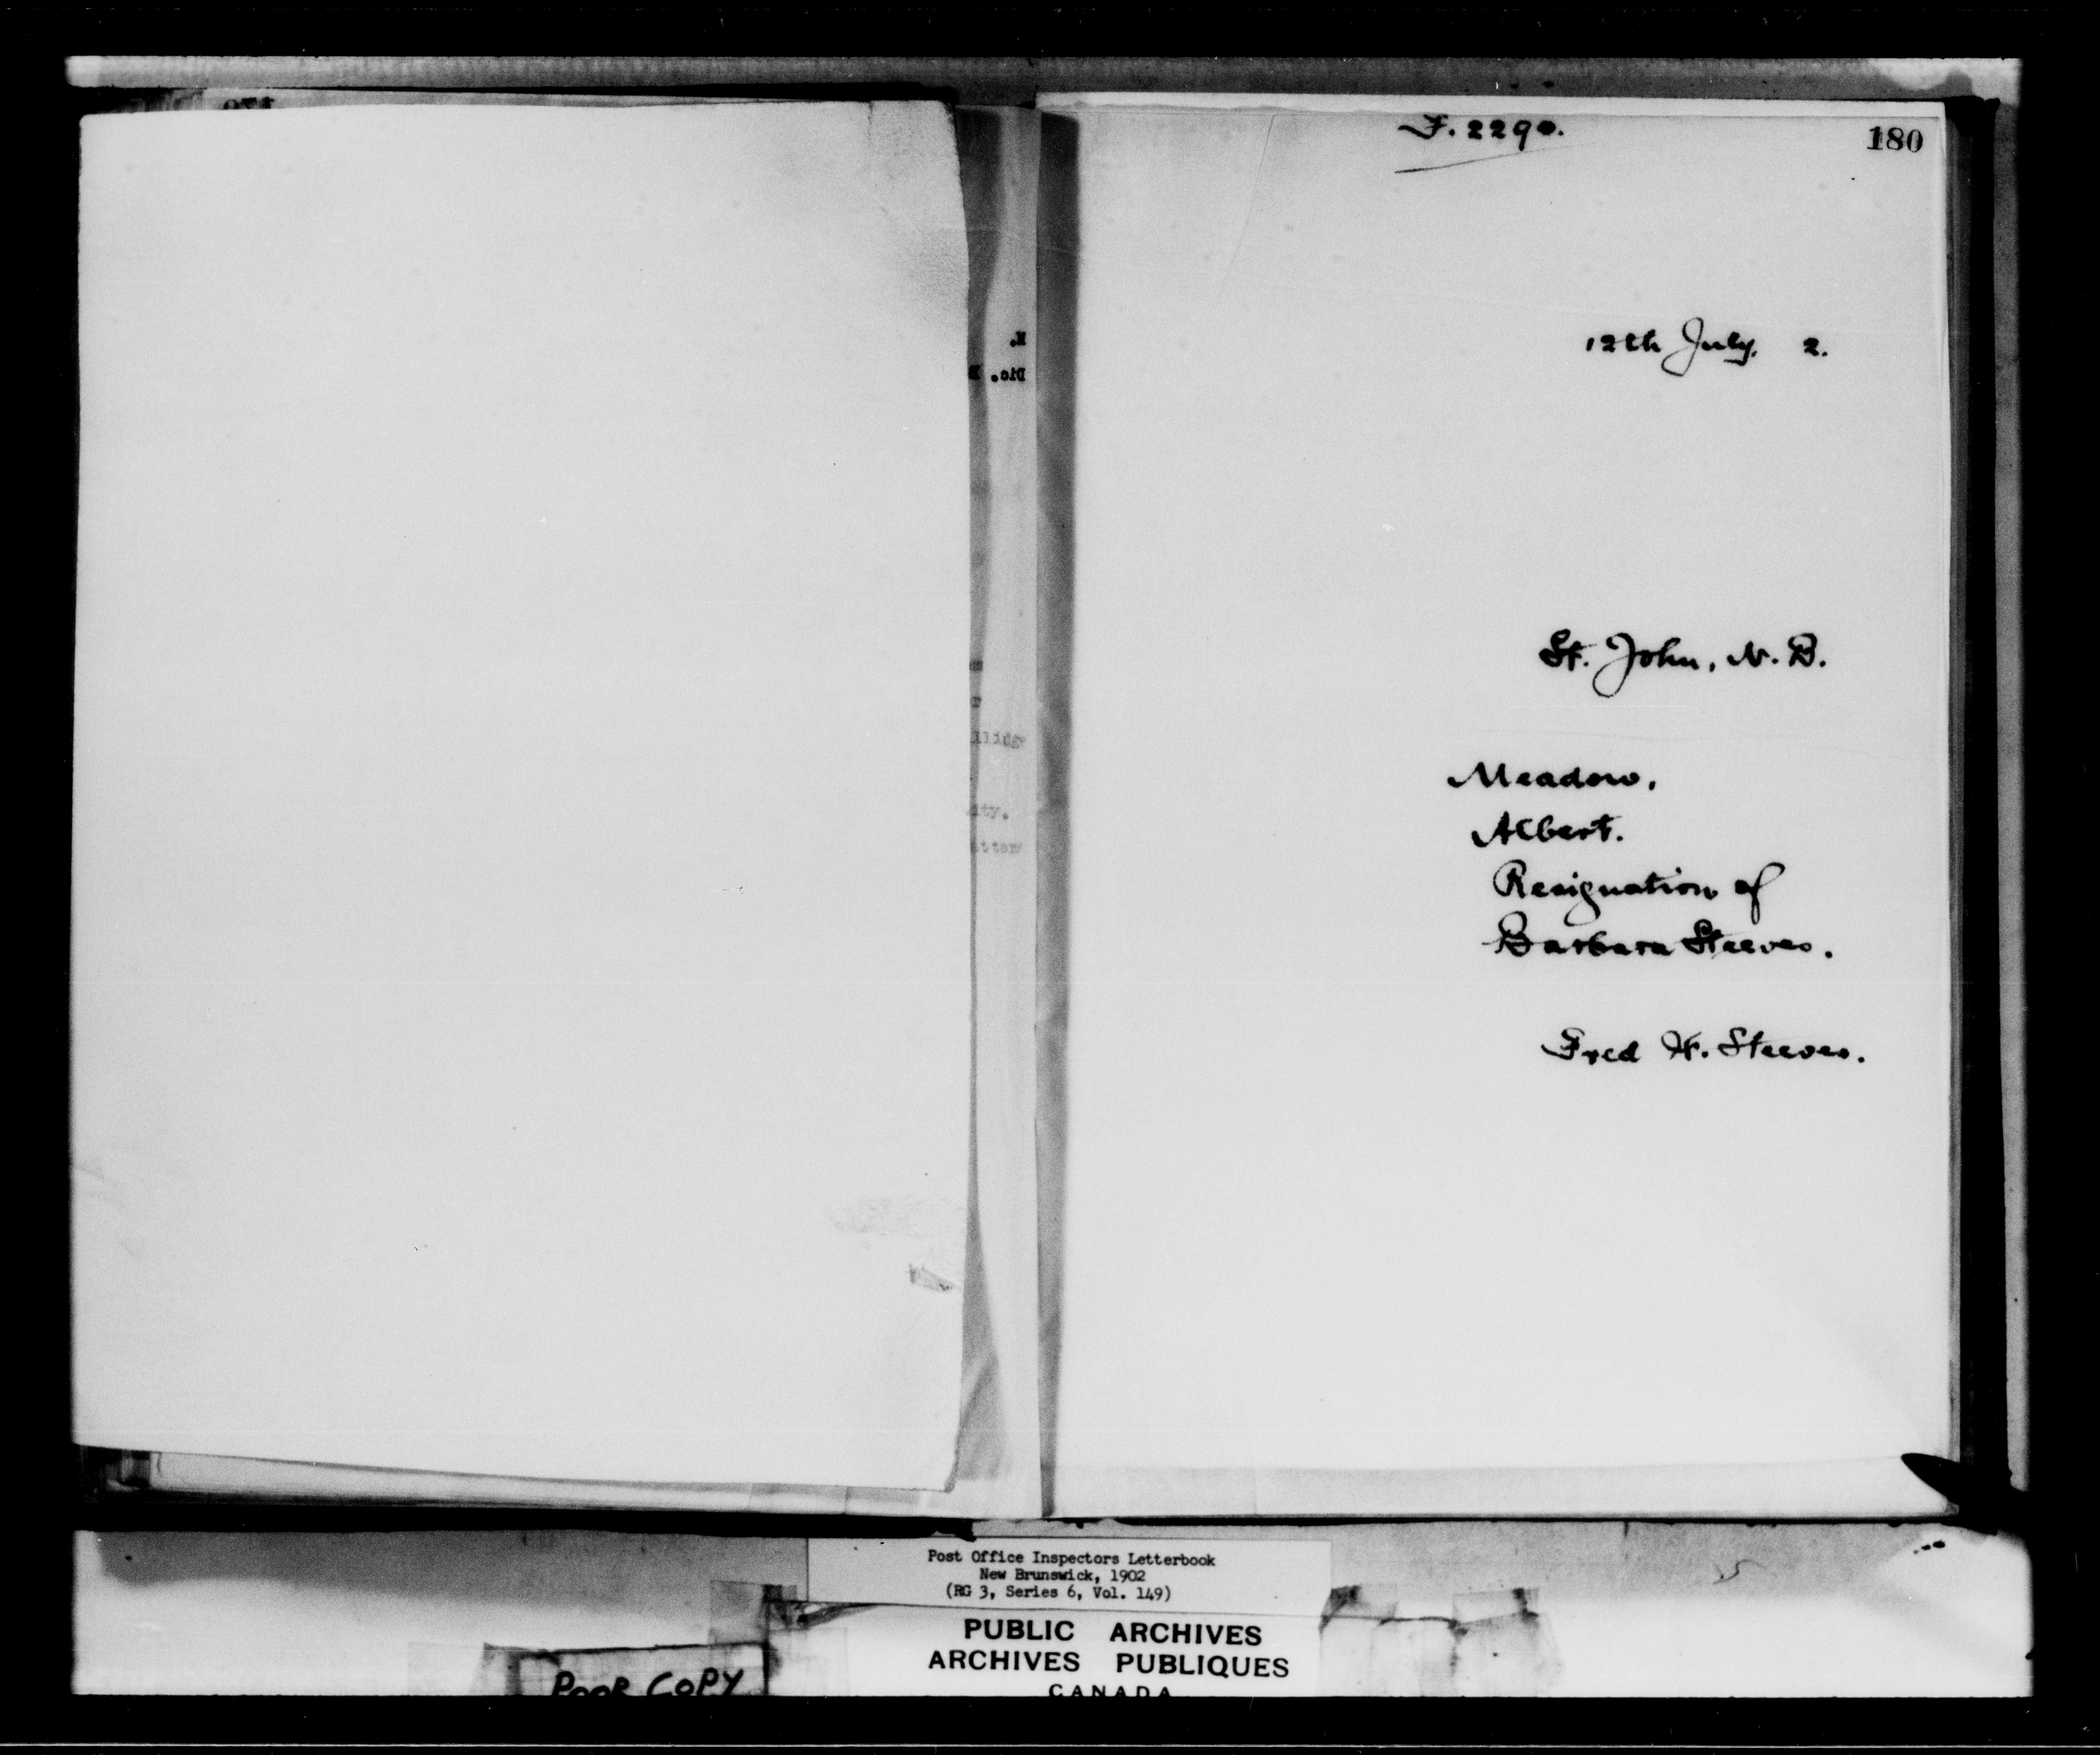 F. 2290.
180
12th July, 2.
St. John, N. B.
Meadow,
Albert.
Resignation of
Barbara Steeves.
Fred H. Steeves.
Post Office Inspectors Letterbook
New Brunswick, 1902
(RG 3, Series 6, Vol. 149)
PUBLIC ARCHIVES
ARCHIVES PUBLIQUES
CANADA
POOR COPY